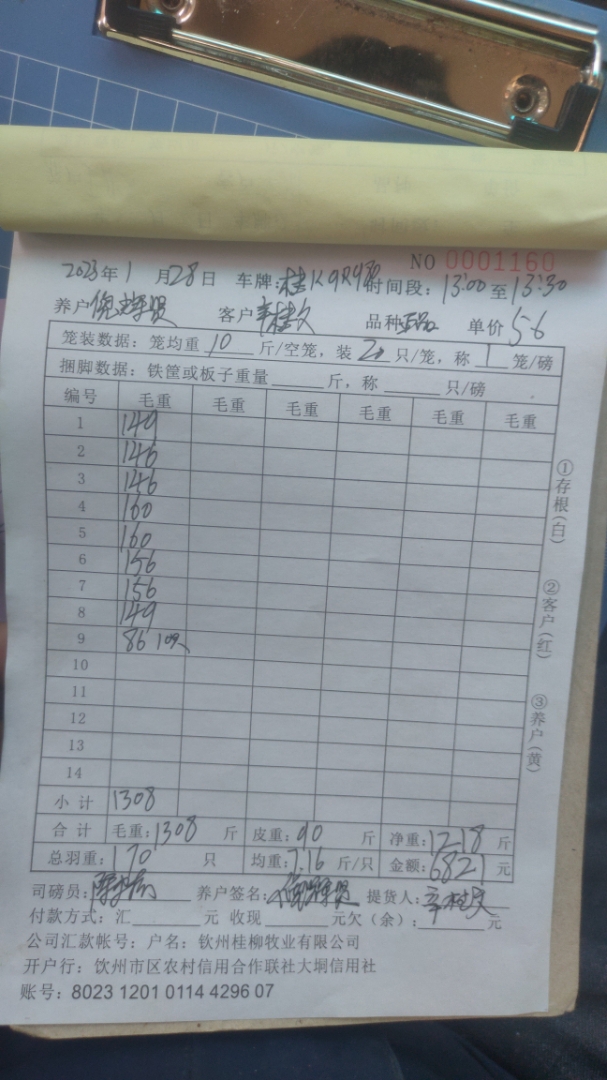 NO 0001160
2023年1月28日 车牌:桂K9R9 时间段:13:00至13:30
养户 客户 品种正品 单价5.6
笼装数据:笼均重10斤/空笼,装20只/笼,称1笼/磅
捆脚数据:铁筐或板子重量____斤,称____只/磅
编号 毛重 毛重 毛重 毛重 毛重 毛重
1 149
2 146
3 146
4 160
5 160
6 156
7 156
8 149
9 86 10只
10
11
12
13
14
小计 1308
合计 毛重:1308斤 皮重:90斤 净重:1218斤
总羽重:170只 均重:7.16斤/只 金额:6821元
司磅员: 养户签名: 提货人:
付款方式:汇____元 收现____元欠(余):____元
公司汇款帐号:户名:钦州桂柳牧业有限公司
开户行:钦州市区农村信用合作联社大垌信用社
账号:8023 1201 0114 4296 07
①存根(白)
②客户(红)
③养户(黄)